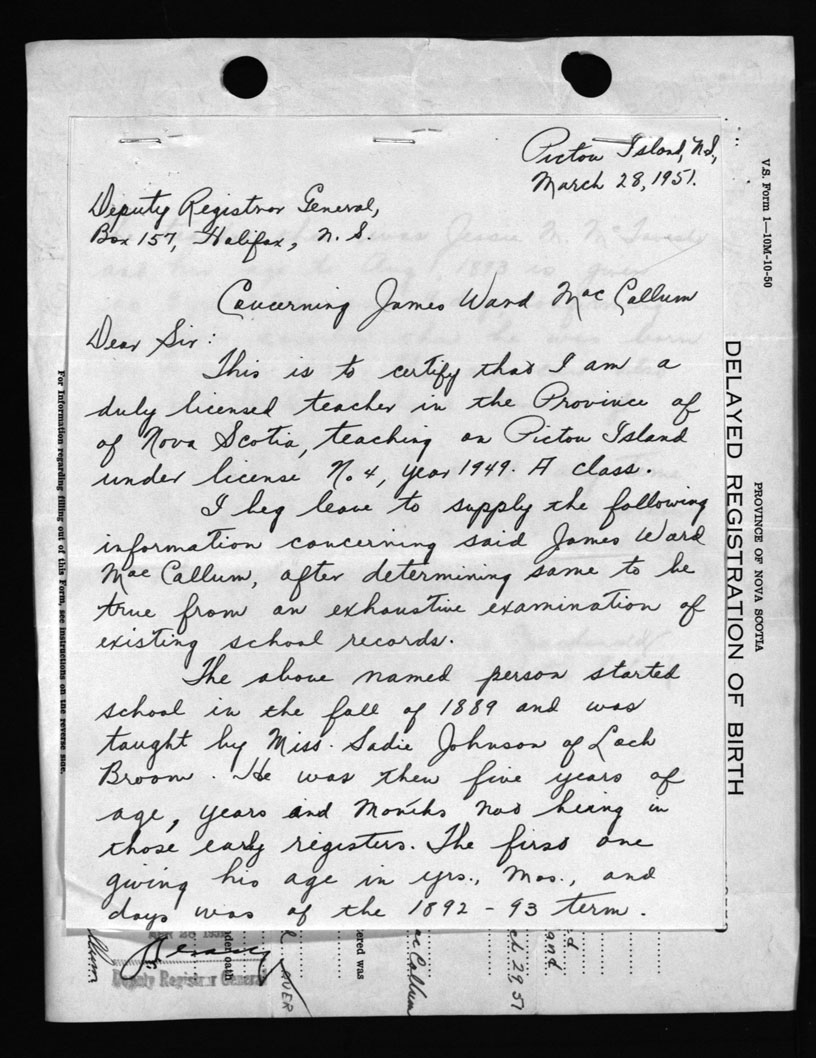 Pictou Island, N.S.,
March 28, 1951.
Deputy Registrar General,
Box 157, Halifax, N. S.
Concerning James Ward MacCallum
Dear Sir:
This is to certify that I am a
duly licensed teacher in the Province of
of Nova Scotia, teaching on Pictou Island
under license No. 4, year 1949. A class.
I beg leave to supply the following
information concerning said James Ward
MacCallum, after determining same to be
true from an exhaustive examination of
existing school records.
The above named person started
school in the fall of 1889 and was
taught by Miss. Sadie Johnson of Loch
Broom. He was then five years of
age, years and months not being in
those early registers. The first one
giving his age in yrs., mos., and
days was of the 1892 - 93 term.
V.S. Form 1—10M-10-50
PROVINCE OF NOVA SCOTIA
DELAYED REGISTRATION OF BIRTH
For Information regarding filling out of this Form, see instructions on the reverse side.
Deputy Registrar General
nder oath
ered was
ac Callum
ch 29 51
and